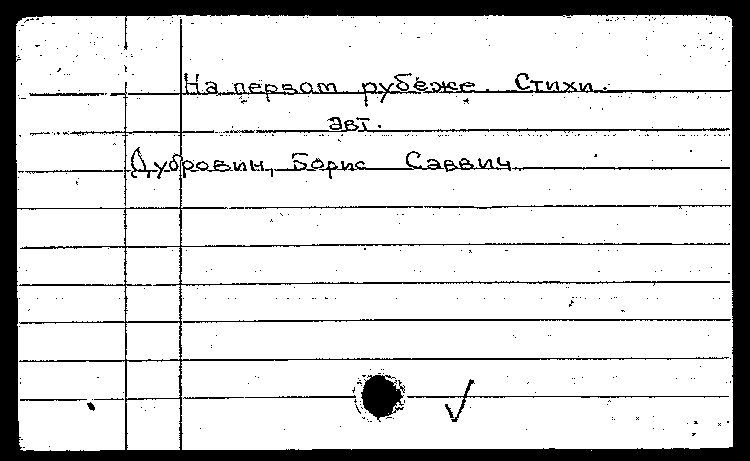 На первом рубеже. Стихи.
авт.
Дубровин, Борис Саввич